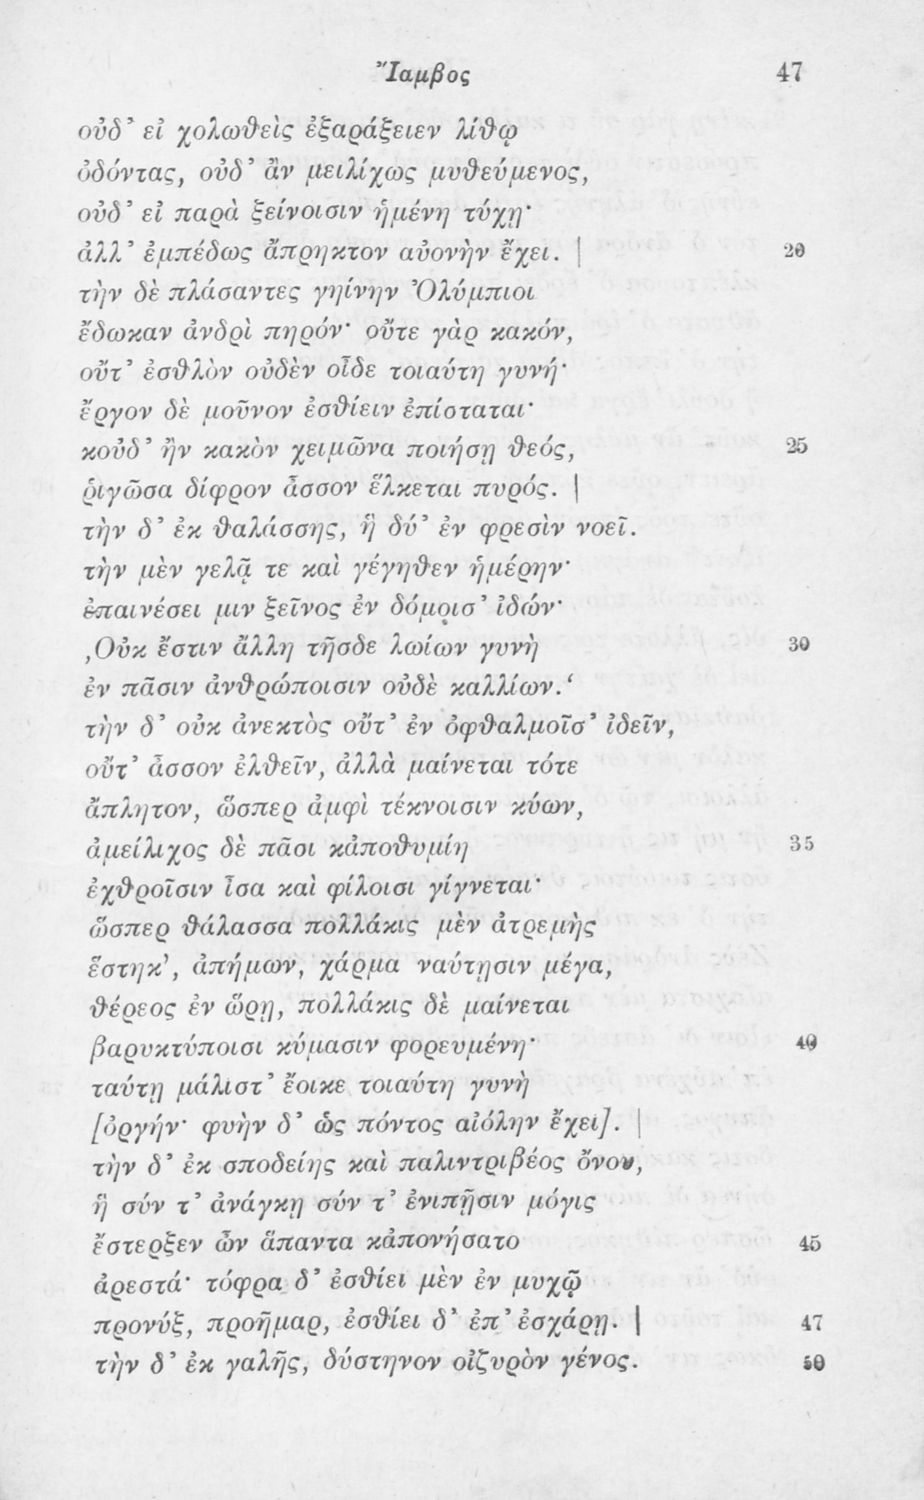 Ἴαμβος 47
οὐδ' εἰ χολωθεὶς ἐξαράξειεν λίθῳ
ὀδόντας, οὐδ' ἂν μειλίχως μυθεύμενος,
οὐδ' εἰ παρὰ ξείνοισιν ἡμένη τύχῃ·
ἀλλ' ἐμπέδως ἄπρηκτον αὐονὴν ἔχει. | 20
τὴν δὲ πλάσαντες γηίνην Ὀλύμπιοι
ἔδωκαν ἀνδρὶ πηρόν· οὔτε γὰρ κακόν,
οὔτ' ἐσθλὸν οὐδὲν οἶδε τοιαύτη γυνή·
ἔργον δὲ μοῦνον ἐσθίειν ἐπίσταται·
κοὐδ' ἢν κακὸν χειμῶνα ποιήσῃ θεός, 25
ῥιγῶσα δίφρον ἆσσον ἕλκεται πυρός. |
τὴν δ' ἐκ θαλάσσης, ἣ δύ' ἐν φρεσὶν νοεῖ.
τὴν μὲν γελᾷ τε καὶ γέγηθεν ἡμέρην·
ἐπαινέσει μιν ξεῖνος ἐν δόμοισ' ἰδών·
‚Οὐκ ἔστιν ἄλλη τῆσδε λωίων γυνὴ 30
ἐν πᾶσιν ἀνθρώποισιν οὐδὲ καλλίων.‘
τὴν δ' οὐκ ἀνεκτὸς οὔτ' ἐν ὀφθαλμοῖσ' ἰδεῖν,
οὔτ' ἆσσον ἐλθεῖν, ἀλλὰ μαίνεται τότε
ἄπλητον, ὥσπερ ἀμφὶ τέκνοισιν κύων,
ἀμείλιχος δὲ πᾶσι κἀποθυμίη 35
ἐχθροῖσιν ἶσα καὶ φίλοισι γίγνεται·
ὥσπερ θάλασσα πολλάκις μὲν ἀτρεμὴς
ἕστηκ', ἀπήμων, χάρμα ναύτῃσιν μέγα,
θέρεος ἐν ὥρῃ, πολλάκις δὲ μαίνεται
βαρυκτύποισι κύμασιν φορευμένη· 40
ταύτῃ μάλιστ' ἔοικε τοιαύτη γυνὴ
[ὀργήν· φυὴν δ' ὡς πόντος αἰόλην ἔχει]. |
τὴν δ' ἐκ σποδείης καὶ παλιντριβέος ὄνου,
ἣ σύν τ' ἀνάγκῃ σύν τ' ἐνιπῇσιν μόγις
ἔστερξεν ὦν ἅπαντα κἀπονήσατο 45
ἀρεστά· τόφρα δ' ἐσθίει μὲν ἐν μυχῷ
προνύξ, προῆμαρ, ἐσθίει δ' ἐπ' ἐσχάρῃ. | 47
τὴν δ' ἐκ γαλῆς, δύστηνον οἰζυρὸν γένος. 50